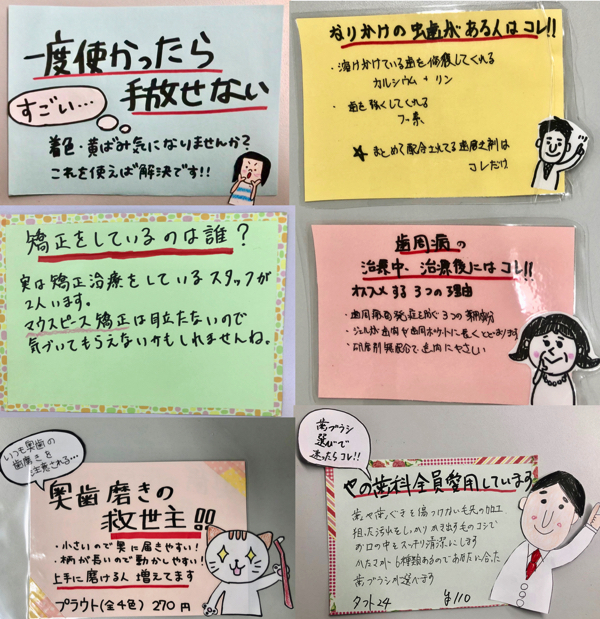 一度使かったら
手放せない
すごい…
着色・黄ばみ気になりませんか?
これを使えば解決です!!
なりかけの虫歯がある人はコレ!!
・溶けかけている歯を修復してくれる
カルシウム + リン
・歯を強くしてくれる
フッ素
★ まとめて配合されてる歯磨き剤は
コレだけ
矯正をしているのは誰?
実は矯正治療をしているスタッフが
2人います。
マウスピース矯正は目立たないので
気づいてもらえないかもしれませんね。
歯周病の
治療中、治療後にはコレ!!
オススメする3つの理由
・歯周病の発症を防ぐ3つの薬用成分
・ジェルが歯肉や歯周ポケットに長くとどまります
・研磨剤無配合で歯肉にやさしい
いつも奥歯の
歯磨きを
注意される…
奥歯磨きの
救世主!!
・小さいので奥に届きやすい!
・柄が長いので動かしやすい!
上手に磨ける人 増えてます
プラウト(全4色) 270円
歯ブラシ
選びで
迷ったらコレ!!
やの歯科全員愛用しています
歯や歯ぐきを傷つけない毛先の加工
狙った汚れをしっかりかき出す毛のコシで
お口の中をスッキリ清潔にします
かたさが 6種類あるのであなたに合った
歯ブラシが選べます
タフト24 ¥110